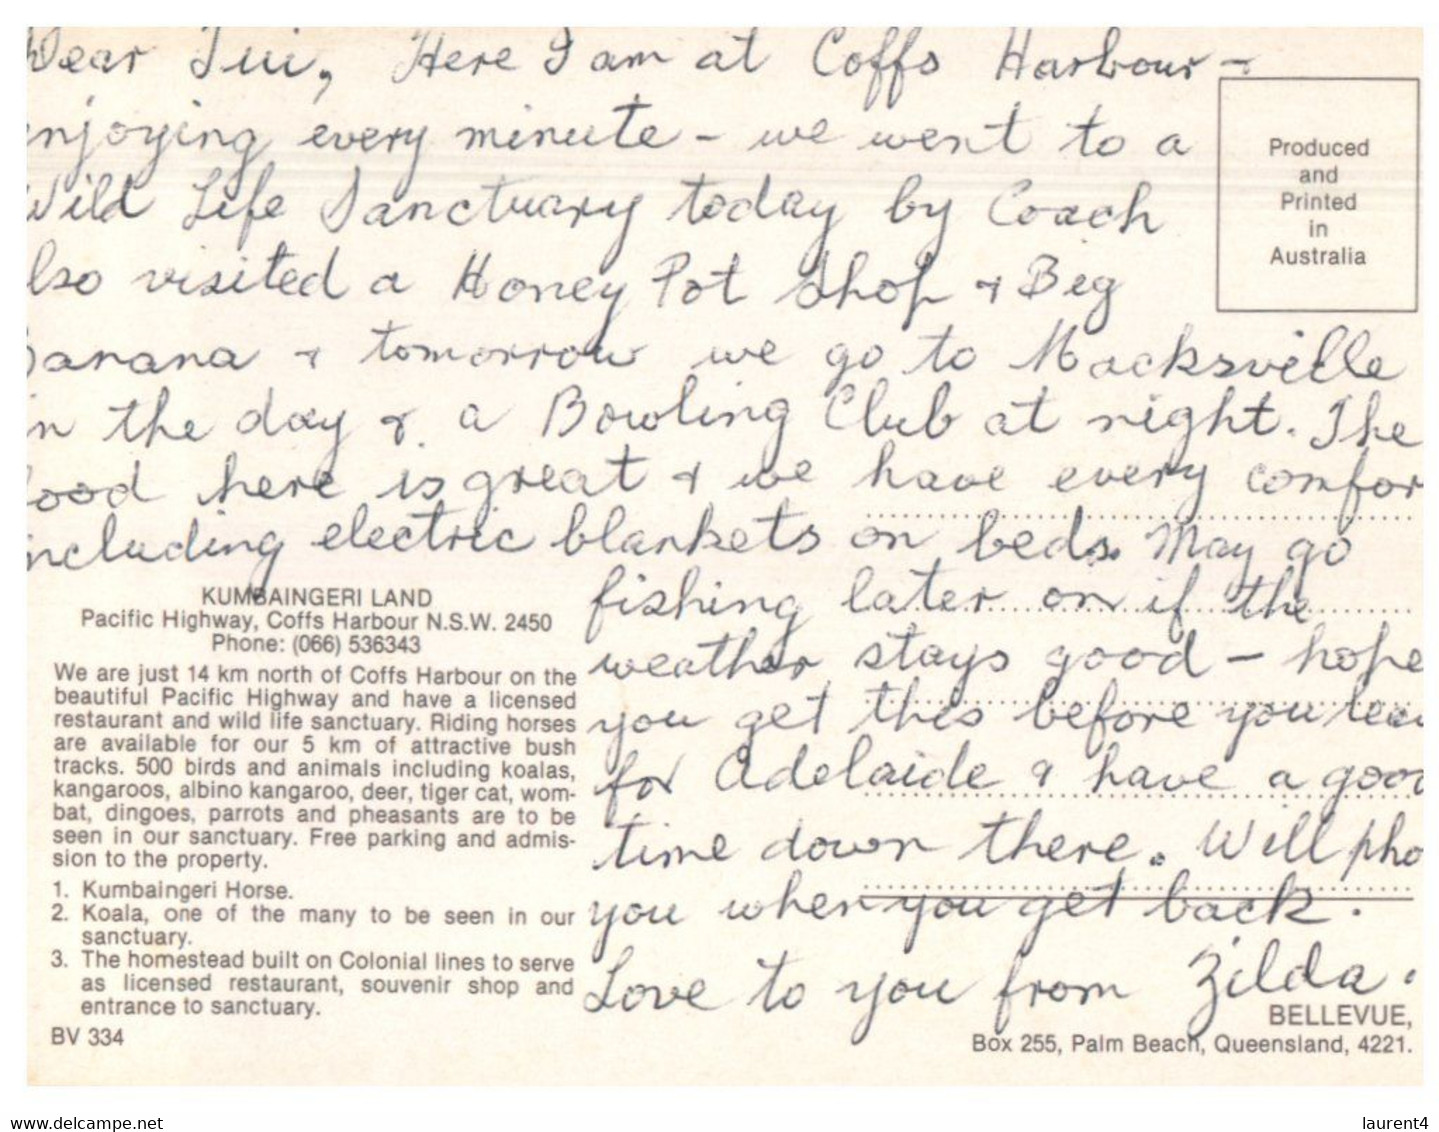 Dear Tui, Here I am at Coffs Harbour -
enjoying every minute - we went to a
Wild Life Sanctuary today by Coach
also visited a Honey Pot Shop & Big
Banana & tomorrow we go to Macksville
in the day & a Bowling Club at night. The
food here is great & we have every comfor
including electric blankets on beds. May go
fishing later on if the
weather stays good - hope
you get this before you leav
for Adelaide & have a good
time down there. Will pho
you when you get back.
Love to you from Zilda.
Produced
and
Printed
in
Australia
KUMBAINGERI LAND
Pacific Highway, Coffs Harbour N.S.W. 2450
Phone: (066) 536343
We are just 14 km north of Coffs Harbour on the
beautiful Pacific Highway and have a licensed
restaurant and wild life sanctuary. Riding horses
are available for our 5 km of attractive bush
tracks. 500 birds and animals including koalas,
kangaroos, albino kangaroo, deer, tiger cat, wom-
bat, dingoes, parrots and pheasants are to be
seen in our sanctuary. Free parking and admis-
sion to the property.
1. Kumbaingeri Horse.
2. Koala, one of the many to be seen in our
sanctuary.
3. The homestead built on Colonial lines to serve
as licensed restaurant, souvenir shop and
entrance to sanctuary.
BV 334
BELLEVUE,
Box 255, Palm Beach, Queensland, 4221.
www.delcampe.net
laurent4